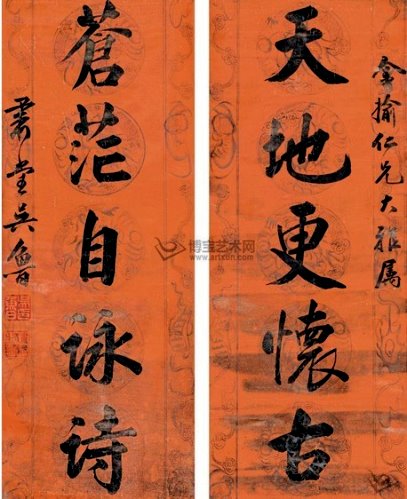 金榆仁兄大雅属
天地更懷古
蒼茫自詠詩
肅堂吳魯
博宝艺术网
www.artxun.com